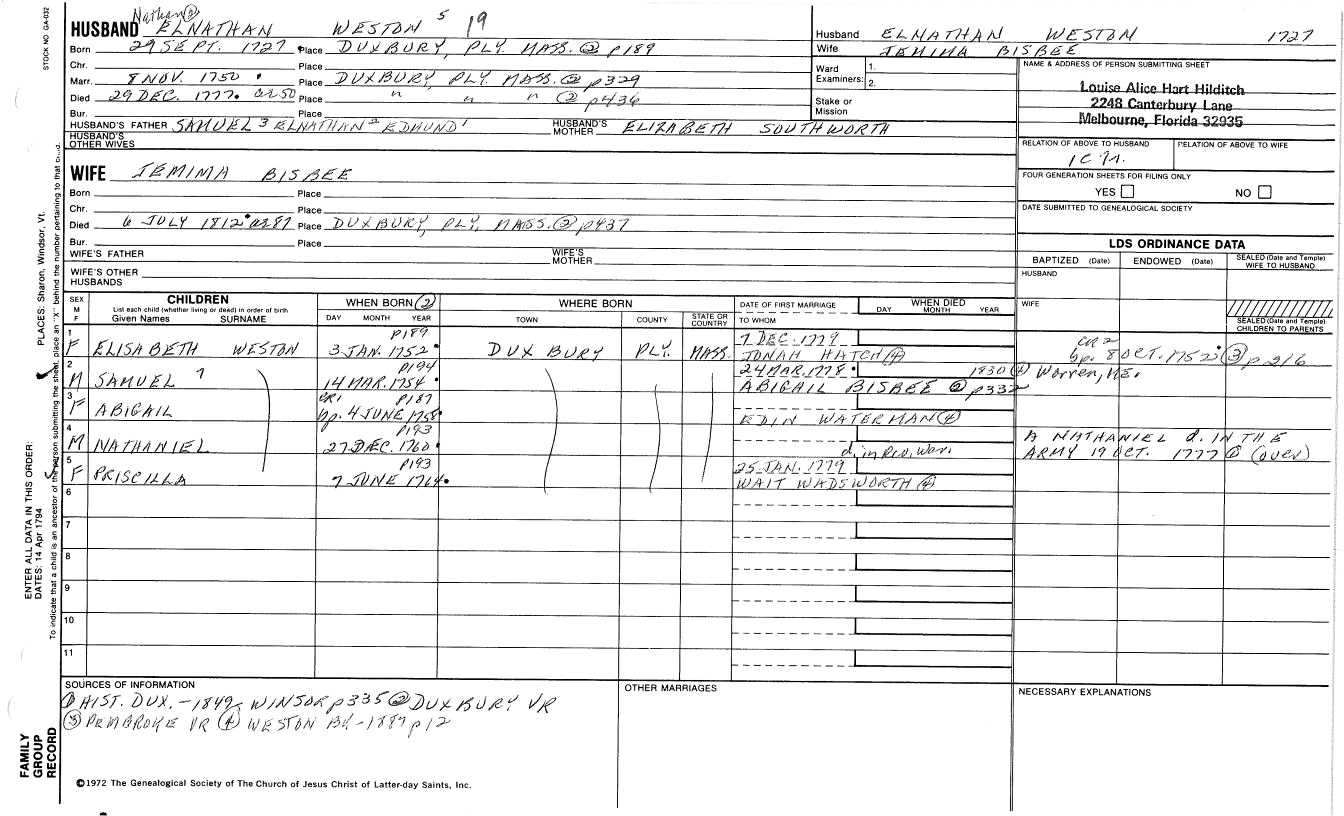 STOCK NO GA-032
Nathan ②
HUSBAND ELNATHAN WESTON 5 19
Born 29 SEPT. 1727 Place DUXBURY, PLY. MASS. ② p189
Chr. Place
Marr. 8 NOV. 1750 Place DUXBURY, PLY. MASS. ② p329
Died 29 DEC. 1777. Place " " " ② p436
Bur. Place
HUSBAND'S FATHER SAMUEL 3 ELNATHAN 2 EDMUND 1 HUSBAND'S MOTHER ELIZABETH SOUTHWORTH
HUSBAND'S OTHER WIVES
WIFE JEMIMA BISBEE
Born Place
Chr. Place
Died 6 JULY 1812 Place DUXBURY, PLY, MASS. ② p437
Bur. Place
WIFE'S FATHER WIFE'S MOTHER
WIFE'S OTHER HUSBANDS
Husband ELNATHAN WESTON 1727
Wife JEMIMA BISBEE
Ward Examiners: 1.
2.
Stake or Mission
NAME & ADDRESS OF PERSON SUBMITTING SHEET
Louise Alice Hart Hilditch
2248 Canterbury Lane
Melbourne, Florida 32935
RELATION OF ABOVE TO HUSBAND RELATION OF ABOVE TO WIFE
FOUR GENERATION SHEETS FOR FILING ONLY
YES NO
DATE SUBMITTED TO GENEALOGICAL SOCIETY
LDS ORDINANCE DATA
BAPTIZED (Date) ENDOWED (Date) SEALED (Date and Temple) WIFE TO HUSBAND
HUSBAND
WIFE
SEALED (Date and Temple) CHILDREN TO PARENTS
SEX M F CHILDREN WHEN BORN ② WHERE BORN DATE OF FIRST MARRIAGE WHEN DIED
List each child (whether living or dead) in order of birth
Given Names SURNAME DAY MONTH YEAR TOWN COUNTY STATE OR COUNTRY TO WHOM DAY MONTH YEAR
1 p189 7 DEC. 1779 CR 2
F ELISABETH WESTON 3 JAN. 1752. DUXBURY PLY. MASS. JONAH HATCH ④ bp. 8 OCT. 1752 ③ p216
2 p194 24 MAR. 1778 1830 ④ Warren, ME.
M SAMUEL 14 MAR. 1754. ABIGAIL BISBEE ② p332
3 CR1 p187
F ABIGAIL bp. 4 JUNE 1758. EDIN WATERMAN ④
4 p193
M NATHANIEL 27 DEC. 1760. d. in Rev. War. A NATHANIEL d. IN THE
5 p193 25 JAN. 1779 ARMY 19 OCT. 1777 ① (over)
F PRISCILLA 7 JUNE 1764. WAIT WADSWORTH ④
6
7
8
9
10
11
SOURCES OF INFORMATION
① HIST. DUX.-1849 WINSOR p335 ② DUXBURY VR
③ PEMBROKE VR ④ WESTON BK.-1887 p12
OTHER MARRIAGES
NECESSARY EXPLANATIONS
©1972 The Genealogical Society of The Church of Jesus Christ of Latter-day Saints, Inc.
FAMILY GROUP RECORD
ENTER ALL DATA IN THIS ORDER:
DATES: 14 Apr 1794
PLACES: Sharon, Windsor, Vt.
To indicate that a child is an ancestor of the person submitting the sheet, place an "X" behind the number pertaining to that child.